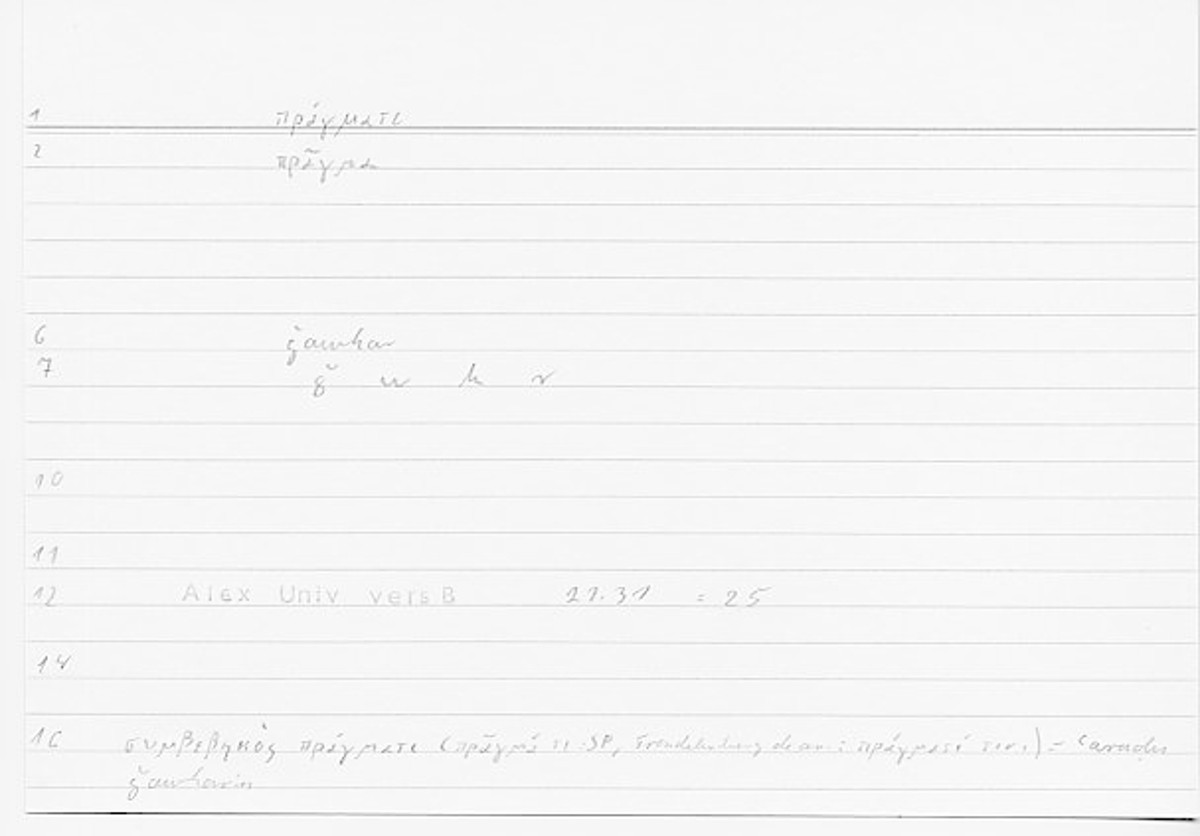 1 πράγματι
2 πρᾶγμα
6 ǧawhar
7 ǧ w h r
10
11
12 Alex Univ vers B 21.31 = 25
14
16 συμβεβηκὸς πράγματι (πρᾶγμά τι SP, Trendelenburg de an.: πράγματί τινι) = ʿaraḍu
ǧawharin